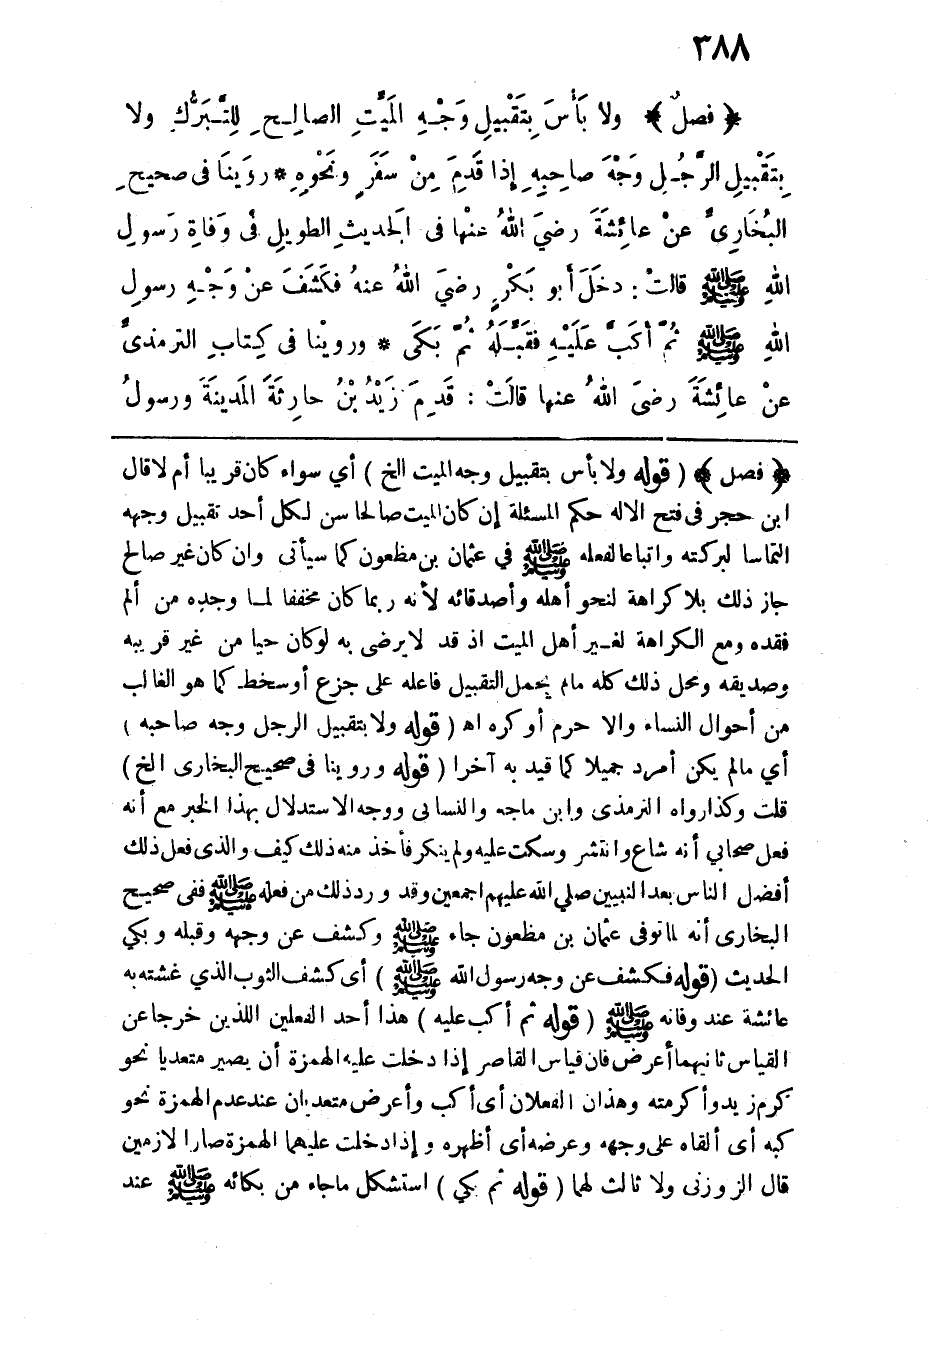 ٣٨٨
﴿ فصلٌ ﴾ ولا بَأْسَ بِتَقْبيلِ وَجْـهِ المَيِّتِ الصالِـحِ لِلتَّـبَرُّكِ ولا
بِتَقْبيلِ الرَّجُـلِ وَجْهَ صاحِبِهِ إِذا قَدِمَ مِنْ سَفَرٍ ونَحْوِهِ * رَوَينَا فى صحيحِ
البُخَارِىِّ عنْ عائِشَةَ رضىَ اللهُ عنْها فى الحَديثِ الطويلِ فى وَفاةِ رَسولِ
اللهِ ﷺ قالتْ : دخَلَ أبو بَكْرٍ رضىَ اللهُ عنهُ فكَشَفَ عنْ وَجْـهِ رسولِ
اللهِ ﷺ ثُمَّ أكَبَّ عَلَيْـهِ فقَبَّـلَهُ ثُمَّ بَكَى * وروينا فى كِتابِ الترمذىِّ
عنْ عائِشَةَ رضىَ اللهُ عنها قالَتْ : قَدِمَ زَيْدُ بْنُ حارِثَةَ المَدينَةَ ورسولُ
﴿ فصل ﴾ ( قوله ولا بأس بتقبيل وجه الميت الخ ) أي سواء كان قريبا أم لا قال
ابن حجر فى فتح الاله حكم المسئلة إن كان الميت صالحا سن لكل أحد تقبيل وجهه
التماسا لبركته واتباعا لفعله ﷺ في عثمان بن مظعون كما سيأتى وان كان غير صالح
جاز ذلك بلا كراهة لنحو أهله وأصدقائه لأنه ربما كان مخففا لما وجده من ألم
فقده ومع الكراهة لغير أهل الميت اذ قد لا يرضى به لو كان حيا من غير قريبه
وصديقه ومحل ذلك كله مالم يحمل التقبيل فاعله على جزع أو سخط كما هو الغالب
من أحوال النساء والا حرم أو كره اه ( قوله ولا بتقبيل الرجل وجه صاحبه )
أي مالم يكن أمرد جميلا كما قيد به آخرا ( قوله وروينا فى صحيح البخارى الخ )
قلت وكذا رواه الترمذى وابن ماجه والنسائى ووجه الاستدلال بهذا الخبر مع أنه
فعل صحابي أنه شاع وانتشر وسكت عليه ولم ينكر فأخذ منه ذلك كيف والذى فعل ذلك
أفضل الناس بعد النبيين صلي الله عليهم اجمعين وقد ورد ذلك من فعله ﷺ ففى صحيح
البخارى أنه لما توفى عثمان بن مظعون جاء ﷺ وكشف عن وجهه وقبله وبكي
الحديث ( قوله فكشف عن وجه رسول الله ﷺ ) أى كشف الثوب الذي غشته به
عائشة عند وفاته ﷺ ( قوله ثم أكب عليه ) هذا أحد الفعلين اللذين خرجا عن
القياس ثانيهما أعرض فان قياس القاصر إذا دخلت عليه الهمزة أن يصير متعديا نحو
كرم زيد وأكرمته وهذان الفعلان أى أكب وأعرض متعديان عند عدم الهمزة نحو
كبه أى ألقاه على وجهه وعرضه أى أظهره وإذا دخلت عليهما الهمزة صارا لازمين
قال الزوزنى ولا ثالث لهما ( قوله ثم بكي ) استشكل ما جاء من بكائه ﷺ عند